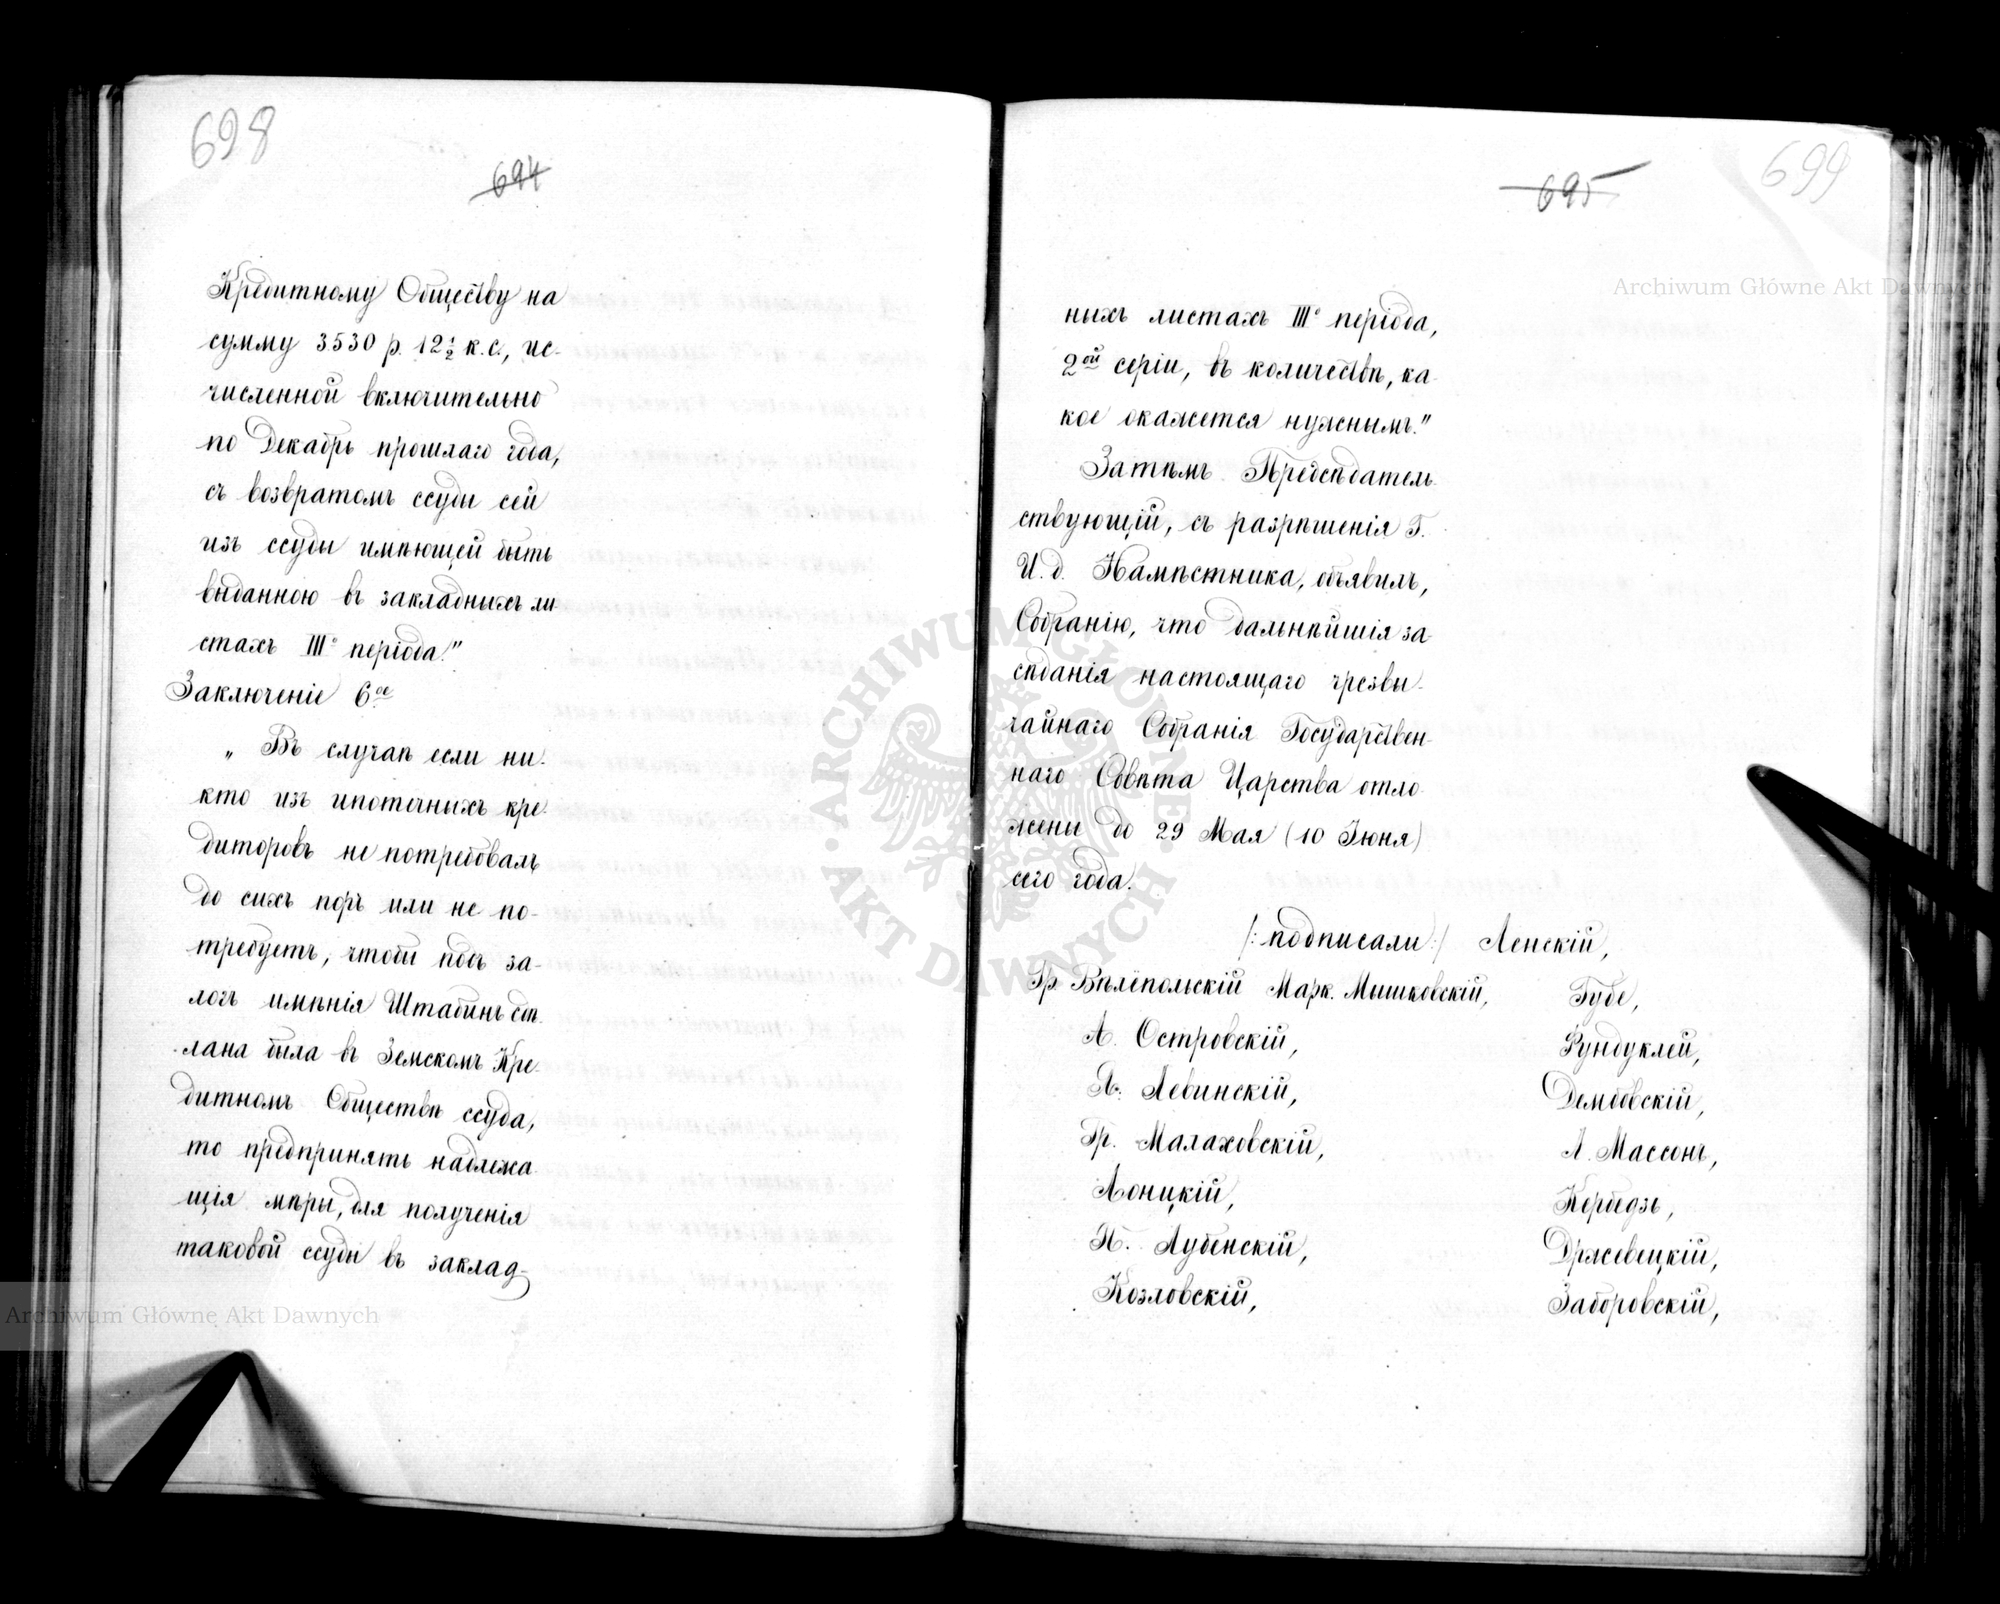 698
694
Кредитному Обществу на
сумму 3530 р. 12½ к.с., ис-
численной включительно
по Декабрь прошлаго года,
съ возвратомъ ссуды сей
изъ ссуды имѣющей быть
выданною въ закладныхъ ли-
стахъ III° періода."
Заключеніе 6ое
„ Въ случаѣ если ни-
кто изъ ипотечныхъ кре-
диторовъ не потребовалъ
до сихъ поръ или не по-
требуетъ, чтобы подъ за-
логъ имѣнія Штабинъ сдѣ-
лана была въ Земскомъ Кре-
дитномъ Обществѣ ссуда,
то предпринять надлежа-
щія мѣры, для полученія
таковой ссуды въ заклад-
695
699
ныхъ листахъ III° періода,
2ой серіи, въ количествѣ, ка-
кое окажется нужнымъ."
Затѣмъ Предсѣдатель-
ствующій, съ разрѣшенія Г.
И. д. Намѣстника, объявилъ,
Собранію, что дальнѣйшія за-
сѣданія настоящаго чрезвы-
чайнаго Собранія Государствен-
наго Совѣта Царства отло-
жены до 29 Мая (10 Іюня)
сего года.
/:подписали:/ Ленскій,
Гр. Вѣлёпольскій Марк. Мышковскій, Губе,
А. Островскій, Фундуклей,
Я. Левинскій, Дембовскій,
Гр. Малаховскій, А. Массонъ,
Лоницкій, Кербедзъ,
П. Лубенскій, Држевецкій,
Козловскій, Заборовскій,
Archiwum Główne Akt Dawnych
Archiwum Główne Akt Dawnych
ARCHIWUM GŁÓWNE
AKT DAWNYCH